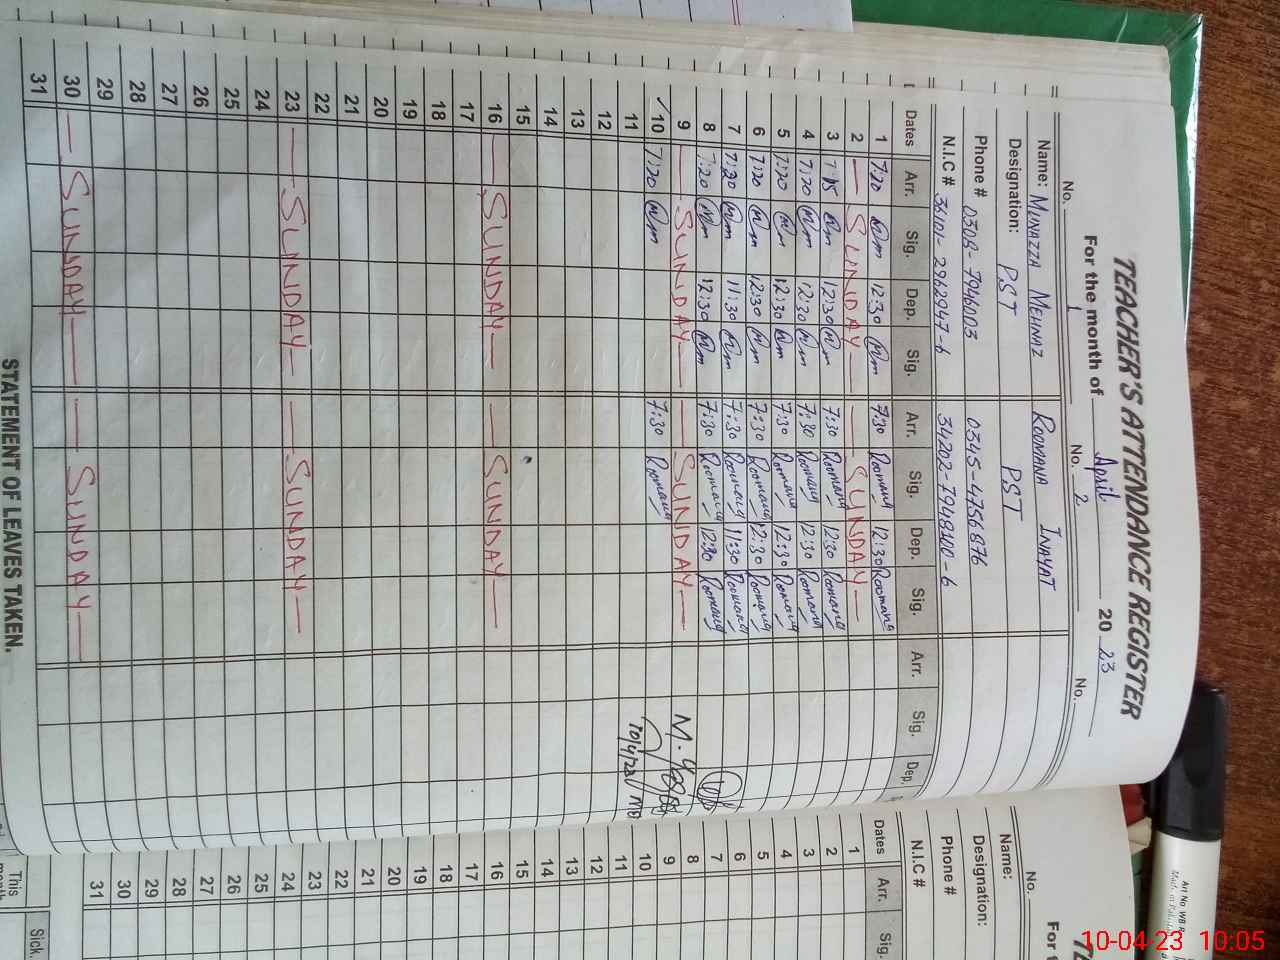 TEACHER'S ATTENDANCE REGISTER
For the month of April 2023
No. 1 No. 2 No.
Name: MUNAZZA MEHNAZ ROOMANA INAYAT
Designation: PST PST
Phone # 0308-7946003 0345-4756876
N.I.C # 36101-2962947-6 34202-7948300-6
Dates Arr. Sig. Dep. Sig. Arr. Sig. Dep. Sig. Arr. Sig. Dep.
1 7:20 12:30 7:30 Roomana 12:30 Roomana
2 SUNDAY SUNDAY
3 7:15 12:30 7:30 Roomana 12:30 Roomana
4 7:20 12:30 7:30 Roomana 12:30 Roomana
5 7:20 12:30 7:30 Roomana 12:30 Roomana
6 7:20 12:30 7:30 Roomana 12:30 Roomana
7 7:20 11:30 7:30 Roomana 11:30 Roomana
8 7:20 12:30 7:30 Roomana 12:30 Roomana
9 SUNDAY SUNDAY
10 7:20 7:30 Roomana
10/4/23
11
12
13
14
15
16 SUNDAY SUNDAY
17
18
19
20
21
22
23 SUNDAY SUNDAY
24
25
26
27
28
29
30 SUNDAY SUNDAY
31
STATEMENT OF LEAVES TAKEN.
For
No.
Name:
Designation:
Phone #
N.I.C #
Dates Arr. Sig.
1
2
3
4
5
6
7
8
9
10
11
12
13
14
15
16
17
18
19
20
21
22
23
24
25
26
27
28
29
30
31
This
month
Sick.
Art No WB
10-04-23 10:05